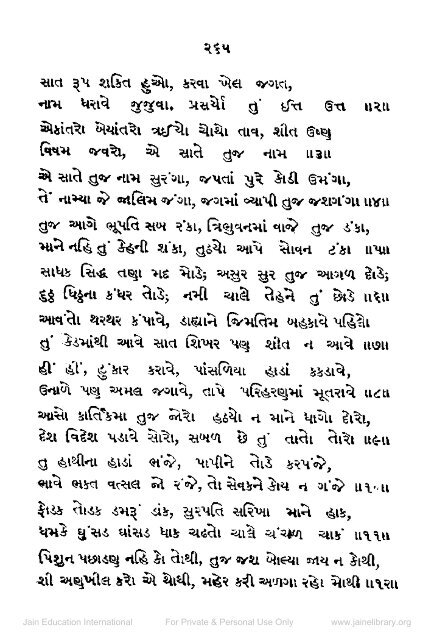 ૨૬૫
સાત રૂપ શકિત હુઓ, કરવા ખેલ જગત,
નામ ધરાવે જુજુવા, પ્રસર્યો તું ઈત્ત ઉત્ત ॥૨॥
એકાંતરો બેયાંતરો ત્રઈયો ચોથો તાવ, શીત ઉષ્ણુ
વિષમ જવરો, એ સાતે તુજ નામ ॥૩॥
એ સાતે તુજ નામ સુરંગા, જપતાં પુરે કોડી ઉમંગા,
તેં નામ્યા જે જાલિમ જંગા, જગમાં વ્યાપી તુજ જશગંગા ॥૪॥
તુજ આગે ભૂપતિ સબ રંકા, ત્રિભુવનમાં વાજે તુજ ડંકા,
માને નહિ તું કેહની શંકા, તુઠયો આપે સોવન ટંકા ॥૫॥
સાધક સિદ્ધ તણા મદ મોડે; અસુર સુર તુજ આગળ દોડે;
દુઠ્ઠ ધિઠ્ઠના કંધર તોડે; નમી ચાલે તેહને તું છોડે ॥૬॥
આવંતો થરથર કંપાવે, ડાહ્યાને જિમતિમ બહકાવે પહિલો
તું કેડમાંથી આવે સાત શિખર પણ શીત ન આવે ॥૭॥
હીં હીં, હુંકાર કરાવે, પાંસળિયા હાડાં કકડાવે,
ઉનાળે પણ અમલ જગાવે, તાપે પરિહરણમાં મૂતરાવે ॥૮॥
આસો કાર્તિકમા તુજ જોરો હઠયો ન માને ધાગો દોરો,
દેશ વિદેશ પડાવે સોરો, સબળ છે તું તાતો તોરો ॥૯॥
તુ હાથીના હાડાં ભંજે, પાપીને તોડે કરપંજે,
ભાવે ભક્ત વત્સલ જો રંજે, તો સેવકને કોય ન ગંજે ॥૧૦॥
ફોડક તોડક ડમરૂં ડાંક, સુરપતિ સરિખા માને હાક,
ધમકે ધુંસડ ધાંસડ ધાક ચઢતો ચાલે ચંચળ ચાક ॥૧૧॥
પિશુન પછાડણુ નહિ કો તોથી, તુજ જશ બોલ્યા જાય ન કોથી,
શી અણુખીલ કરો એ થોથી, મહેર કરી અળગા રહો મોથી ॥૧૨॥
Jain Education International For Private & Personal Use Only www.jainelibrary.org